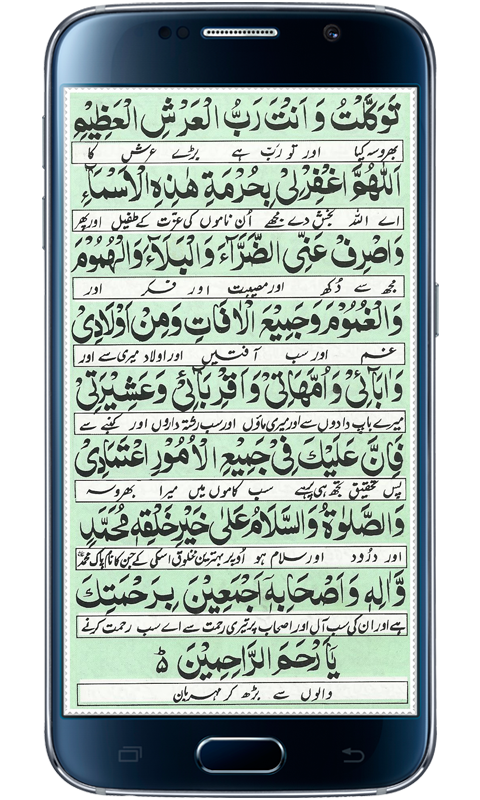 تَوَكَّلْتُ وَ اَنْتَ رَبُّ الْعَرْشِ الْعَظِيْمِ
بھروسہ کیا اور تو ربّ ہے بڑے عرش کا
اَللّٰهُمَّ اغْفِرْلِيْ بِحُرْمَةِ هٰذِهِ الْاَسْمَآءِ
اے اللہ بخش دے مجھے اُن ناموں کی عزّت کے طفیل اور پھر
وَاصْرِفْ عَنِّي الضَّرَّآءَ وَالْبَلَآءَ وَالْهُمُوْمَ
مجھ سے دُکھ اور مصیبت اور فکر اور
وَالْغُمُوْمَ وَجَمِيْعَ الْاٰفَاتِ وَمِنْ اَوْلَادِيْ
غم اور سب آفتیں اور اولاد میری سے اور
وَاٰبَائِيْ وَاُمَّهَاتِيْ وَاَقْرِبَائِيْ وَعَشِيْرَتِيْ
میرے باپ دادوں سے اور میری ماؤں اور سب رشتہ داروں اور کنبے سے
فَاِنَّ عَلَيْكَ فِيْ جَمِيْعِ الْاُمُوْرِ اعْتِمَادِيْ
پس تحقیق تجھ ہی پہ ہے سب کاموں میں میرا بھروسہ
وَالصَّلٰوةُ وَالسَّلَامُ عَلٰى خَيْرِ خَلْقِهٖ مُحَمَّدٍ
اور درُود اور سلام ہو اُوپر بہترین مخلوق اسکی کے جن کا نام پاک محمدؐ
وَّاٰلِهٖ وَاَصْحَابِهٖ اَجْمَعِيْنَ بِرَحْمَتِكَ
ہے اور ان کی سب آل اور اصحاب پر تیری رحمت سے اے سب رحمت کرنے
يَا اَرْحَمَ الرَّاحِمِيْنَ ۵
والوں سے بڑھ کر مہربان